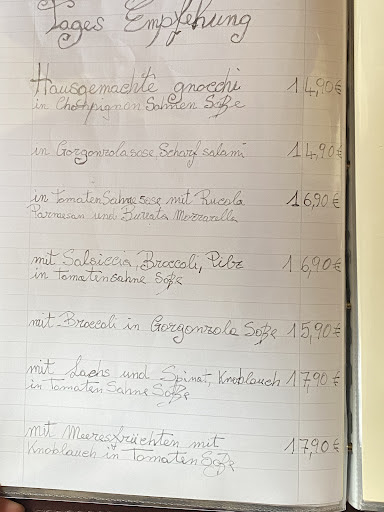 Tages Empfehung
Hausgemachte gnocchi 14,90€
in Champignon Sahnen Soße
in Gorgonzolasose, Scharf salami 14,90€
in TomatenSahnesose mit Rucola 16,90€
Parmesan und Burrata Mozzarella
mit Salsiccia, Broccoli, Pilze 16,90€
in Tomatensahne Soße
mit Broccoli in Gorgonzola Soße 15,90€
mit Lachs und Spinat, Knoblauch 17,90€
in Tomaten Sahne Soße
mit Meeresfrüchten mit 17,90€
Knoblauch in Tomaten Soße